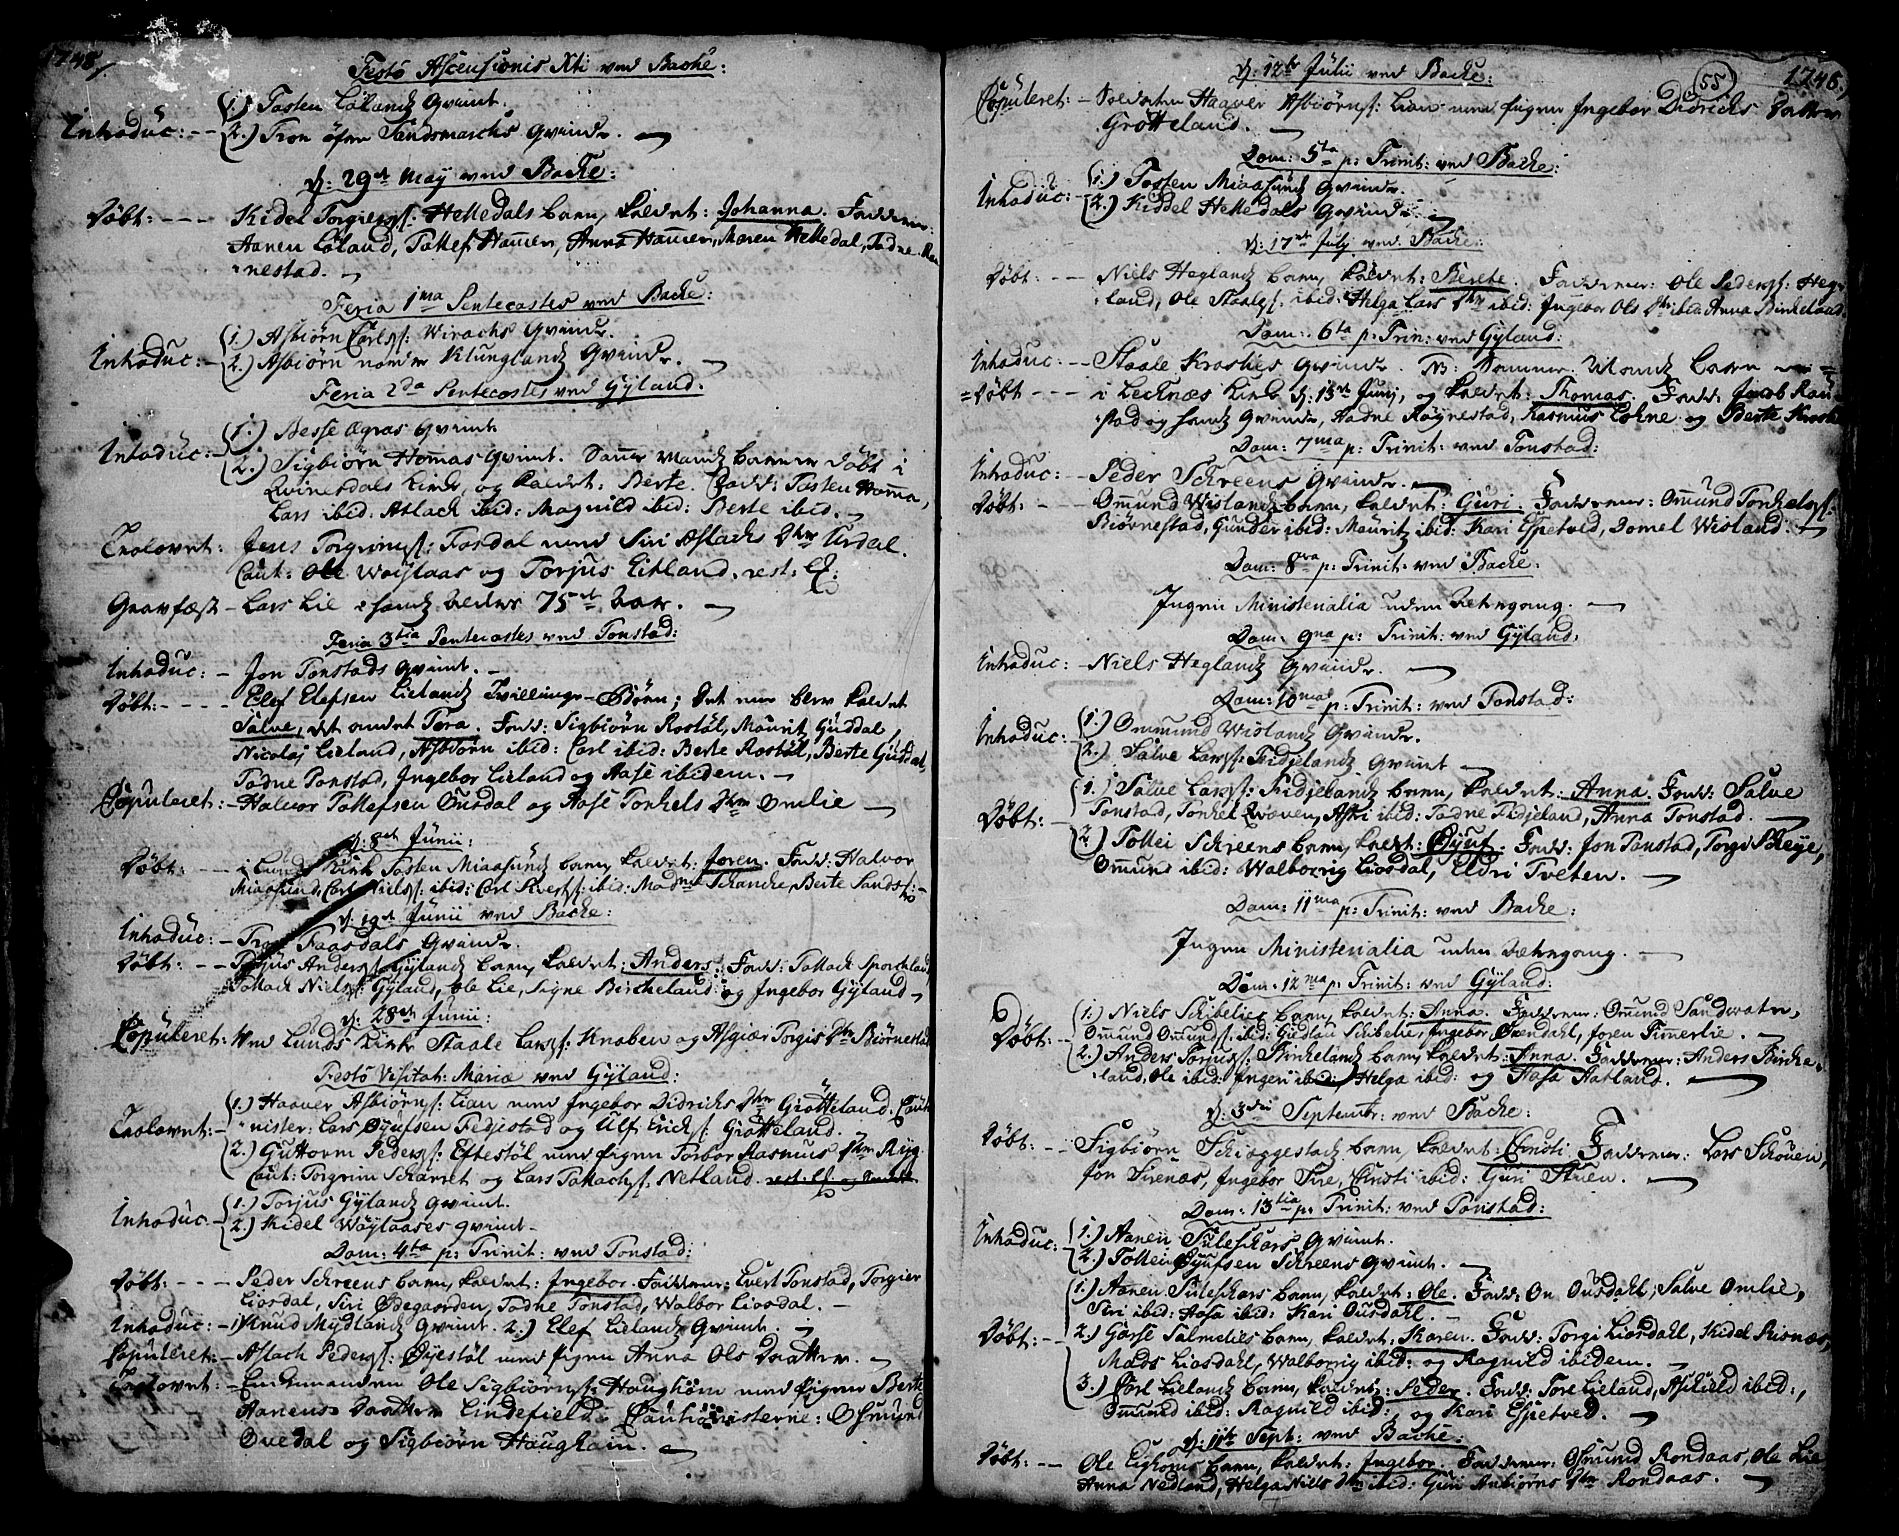 1748
Festo Ascensionis Xti ved Backe:
Introduc: -- 1.) Tosten Lølands Qvinde.
2.) Tron øfre Sandsmarchs Qvinde.
d: 29de May ved Backe:
Døbt: --- Kidel Torgiers: Helledals barn, kaldet: Johanna. Fadderne:
Aanen Løland, Tollef Hamer, Anna Hamer, Maren Helledal, Tadne
nestad.
Feria 1ma Pentecostes ved Backe:
Introduc: - 1.) Asbiørn Carls: Wirachs Qvinde.
2.) Asbiørn nedre Klunglands Qvinde.
Feria 2da Pentecostes ved Gyland:
Introduc: - 1.) Besse Ægeas Qvinde
2.) Sigbiørn Homas Qvinde. Samme Mands barn er døbt i
Qvinesdals Kirke, og kaldet: Berte. Fadd: Tosten Homma,
Lars ibid: Aslach ibid: Magnild ibid: Berte ibid.
Trolovet: Jens Torgrims: Fosdal med Siri Aslachs Dtter Tirdal.
Caut: Ole Wøylaas og Torjus Eitland. rest:
Gravfæst - Lars Lie hands Alder 75de Aar.
Feria 3tia Pentecostes ved Tonstad:
Introduc: - Jon Tonstads Qvinde.
Døbt: ---- Elef Elefsen Lielands Tvillinge-Børn; det ene blev kaldet
Salve, det andet Tora. Fadd: Sigbiørn Rostøl, Mauritz Guddal,
Nicolaj Lieland, Asbiørn ibid: Carl ibid: Berte Rostøl, Berte Gusdal,
Tadne Tonstad, Ingebor Lieland og Aase ibidem.
Copuleret: - Halvor Tollefsen Ousdal og Aase Tonkels Dtter Omlie
d: 8de Junii:
Døbt: --- i Lunds Kirk Tosten Miaasunds barn, kaldet: Joren. Fadd: Halvor
Miaasund, Carl Niels: ibid: Carl Siverss: ibid: Madme Schancke, Berte Sands:
d: 19de Junii ved Backe:
Introduc: - Tron Faasdals Qvinde.
Døbt: --- Torjus Anders: Gylands barn, kaldet: Anders. Fadd: Tollack Sporckland
Tollack Niels: Gyland, Ole Lie, Signe Bircheland og Ingebor Gyland
d: 28de Junii:
Copuleret: Ved Lunds Kirke Staale Lars: Knaben og Asgier Torgis Dtter Biørnestad
Festo Visitat: Mariæ ved Gyland:
Trolovet: - 1.) Haaver Asbiørns: Lian med Ingebor Didrichs Dtter Grøtteland. Cauti-
nister: Lars Øyufsen Fedjestad og Ulf Erichs: Grøtteland.
2.) Guttorm Peders: Eftestøl med Pigen Torbor Rasmus Dtter Ryg.
Caut: Torgrim Schärret og Lars Tollachs: Netland.
Introduc: - 1.) Torjus Gylands Qvinde.
2.) Kidel Wøylaases Qvinde.
Dom: 4ta p: Trinit: ved Tonstad:
Døbt: --- Peder Schreens barn, kaldet: Ingebor. Fadderne: Evert Tonstad, Torgier
Liosdal, Siri Ødegaarden, Tadne Tonstad, Walbor Liosdal.
Introduc: - 1.) Knud Mydlands Qvinde. 2.) Elef Lielands Qvinde.
Copuleret: - Aslach Peders: Øyestøl med Pigen Anna Ols Daatter.
Trolovet: - Enchemanden Ole Sigbiørns: Haughom med Pigen Berte
Aanens Daatter Lindefield. Cautionisterne: Osmund
Ovedal og Sigbiørn Haughom.
55
1748.
d: 12te Julii ved Backe:
Copuleret: - Soldaten Haaver Asbiørns: Lian med Pigen Ingebor Didrichs Datter
Grøtteland.
Dom: 5ta p: Trinit: ved Backe:
Introduc: - 1.) Tosten Miaasunds Qvinde.
2.) Kiddel Helledals Qvinde
d: 17de July ved Backe:
Døbt: --- Niels Heglands barn, kaldet: Berete. Fadderne: Ole Peders: Heg-
land, Ole Staales: ibid: Helga Lars Dtter ibid: Ingebor Ols Dtter ibid: Anna Birkeland
Dom: 6ta p: Trin: ved Gyland:
Introduc: -- Staale Kroshes Qvinde. NB: Sammes Mands barn er
=Døbt --- i Lecknæs Kirke d: 13de Junij, og kaldet: Thomas. Fadd: Jacob Rau-
stad og hands Qvinde, Aadne Røgnestad, Rasmus Lohne og Berte Kroshe
Dom: 7ma p: Trinit: ved Tonstad:
Introduc: - Peder Schreens Qvinde.
Døbt: --- Ommund Wislands barn, kaldet: Guri. Fadderne: Ommund Tonkels:
Biørnestad, Gunder ibid: Mauritz ibid: Kari Espetved, Domel Wisland:
Dom: 8va p: Trinit: ved Backe:
Ingen Ministerialia uden Sehrgang.
Dom: 9na p: Trinit: ved Gyland:
Introduc: - Niels Heglands Qvinde.
Dom: 10ma p: Trinit: ved Tonstad:
Introduc: - 1.) Ommund Wislands Qvinde.
2.) Salve Lars: Fidjelands Qvinde
Døbt: - 1.) Salve Lars: Fidjelands barn, kaldet: Anna. Fadd: Salve
Tonstad, Tonkel Qvæven, Astri ibid: Tadne Fidjeland, Anna Tonstad.
2.) Tollei Schreens barn, kaldet: Øyuf. Fadd: Jon Tonstad, Torgi Bleye,
Ommund ibid: Walborrig Liosdal, Eldri Tveten.
Dom: 11ma p: Trinit: ved Backe:
Ingen Ministerialia uden Sehrgang.
Dom: 12ma p: Trinit: ved Gyland:
Døbt: - 1.) Niels Schibelies barn, kaldet: Anna. Fadderne: Omund Sandvatn,
Ommund Ommunds: ibid: Gudlau Schibelie, Ingebor Øxendahl, Joren Timmerlie.
2.) Anders Torjus: Birkelands barn, kaldet: Anna. Fadderne: Anders Bircke-
land, Ole ibid: Ingeri ibid: Helga ibid: og Aasa Aatland.
d: 3die Septembr: ved Backe:
Døbt: --- Sigbiørn Schiøggestads barn, kaldet: Christi. Fadderne: Lars Schouen,
Jon Sirenæs, Ingebor Sire, Christi ibid: Guri Stuen.
Dom: 13tia p: Trinit: ved Tonstad:
Introduc: - 1.) Aanen Suleskars Qvinde.
2.) Tollei Øyufsen Schreens Qvinde.
Døbt: -- 1.) Aanen Suleskars barn, kaldet: Ole. Fadd: On Ousdahl, Salve Omlie,
Siri ibid: Aasa ibid: Kari Ousdahl.
2.) Gorse Salmelies barn, kaldet: Karen. Fadd: Torgi Liosdahl, Kidel Risnæs,
Mads Liosdahl, Walborrig ibid: og Ragnild ibidem.
3.) Carl Lielands barn, kaldet: Peder. Fadd: Tore Lieland, Askield ibid:,
Ommund ibid: Ragnild ibid: og Kari Espetved.
d: 11te Sept: ved Backe:
Døbt: -- Ole Eighoms barn, kaldet: Ingebor. Fadderne: Osmund Rondaas, Ole Lie
Anna Nedland, Helga Niels Dtter ibid: Guri Anbiørns Dtter Rondaas.